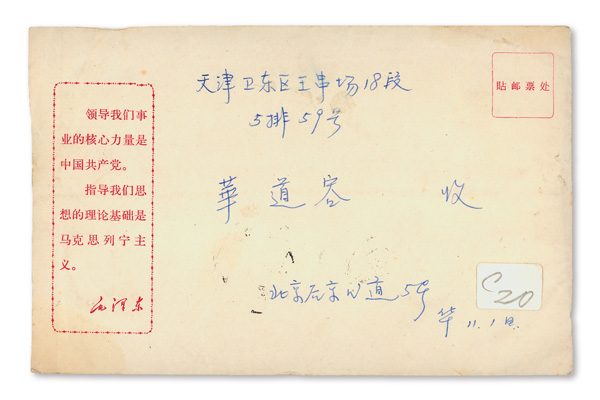 领导我们事
业的核心力量是
中国共产党。
指导我们思
想的理论基础是
马克思列宁主
义。
毛泽东
貼邮票处
天津卫东区王串场18段
5排59号
華道容 收
北京 道5号
华 11.1日
C20